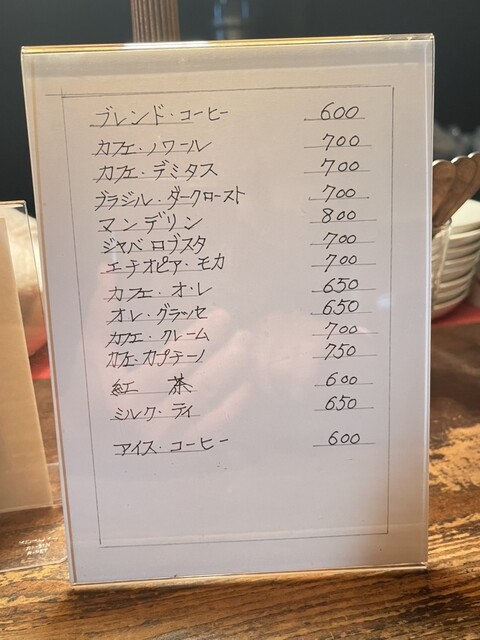 ブレンド・コーヒー 600
カフェ・ノワール 700
カフェ・デミタス 700
ブラジル・ダークロースト 700
マンデリン 800
ジャバ ロブスタ 700
エチオピア・モカ 700
カフェ・オ・レ 650
オ・レ・グラッセ 650
カフェ・クレーム 700
カフェ・カプチーノ 750
紅 茶 600
ミルク・ティ 650
アイス・コーヒー 600